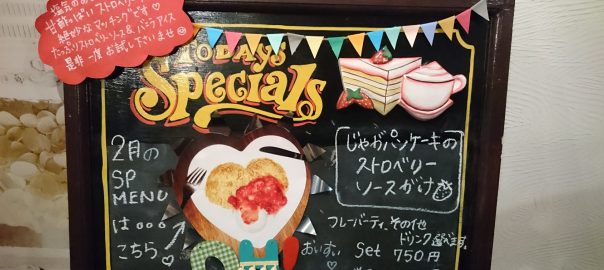 甘酸っぱいストロベリー
絶妙なマッチングです♡
たっぷりストロベリーソース&バニラアイス
是非一度お試し下さいませ
TODAYS
Specials
2月の
SP
MENU
は。。。
こちら♡
じゃがパンケーキの
ストロベリー
ソースがけ
フレーバーティ、その他
ドリンク選べます。
おいすぃ♡
Set 750円